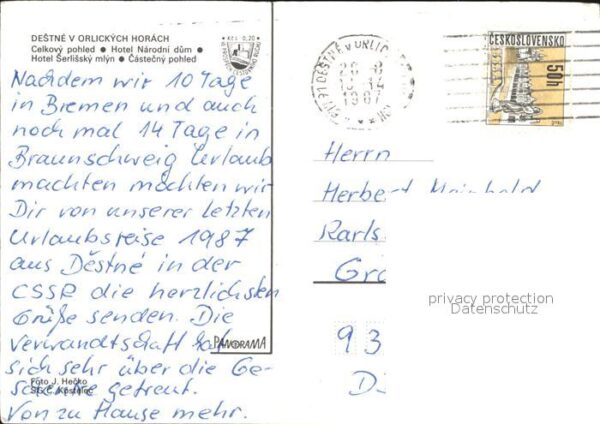 DEŠTNÉ V ORLICKÝCH HORÁCH
Celkový pohled ● Hotel Národní dům ●
Hotel Šerlišský mlýn ● Částečný pohled
Kčs 0,20
Nachdem wir 10 Tage
in Bremen und auch
noch mal 14 Tage in
Braunschweig Urlaub
machten möchten wir
Dir von unserer letzten
Urlaubsreise 1987
aus Děstné in der
CSSR die herzlichsten
Grüße senden. Die
Verwandtschaft hat
sich sehr über die Ge-
schenke gefreut.
Von zu Hause mehr.
Foto J. Hečko
PANORAMA
DEŠTNÉ V ORLIC
ČESKOSLOVENSKO
50h
Herrn
Herbert
Karls
Grü
privacy protection
Datenschutz
93
D